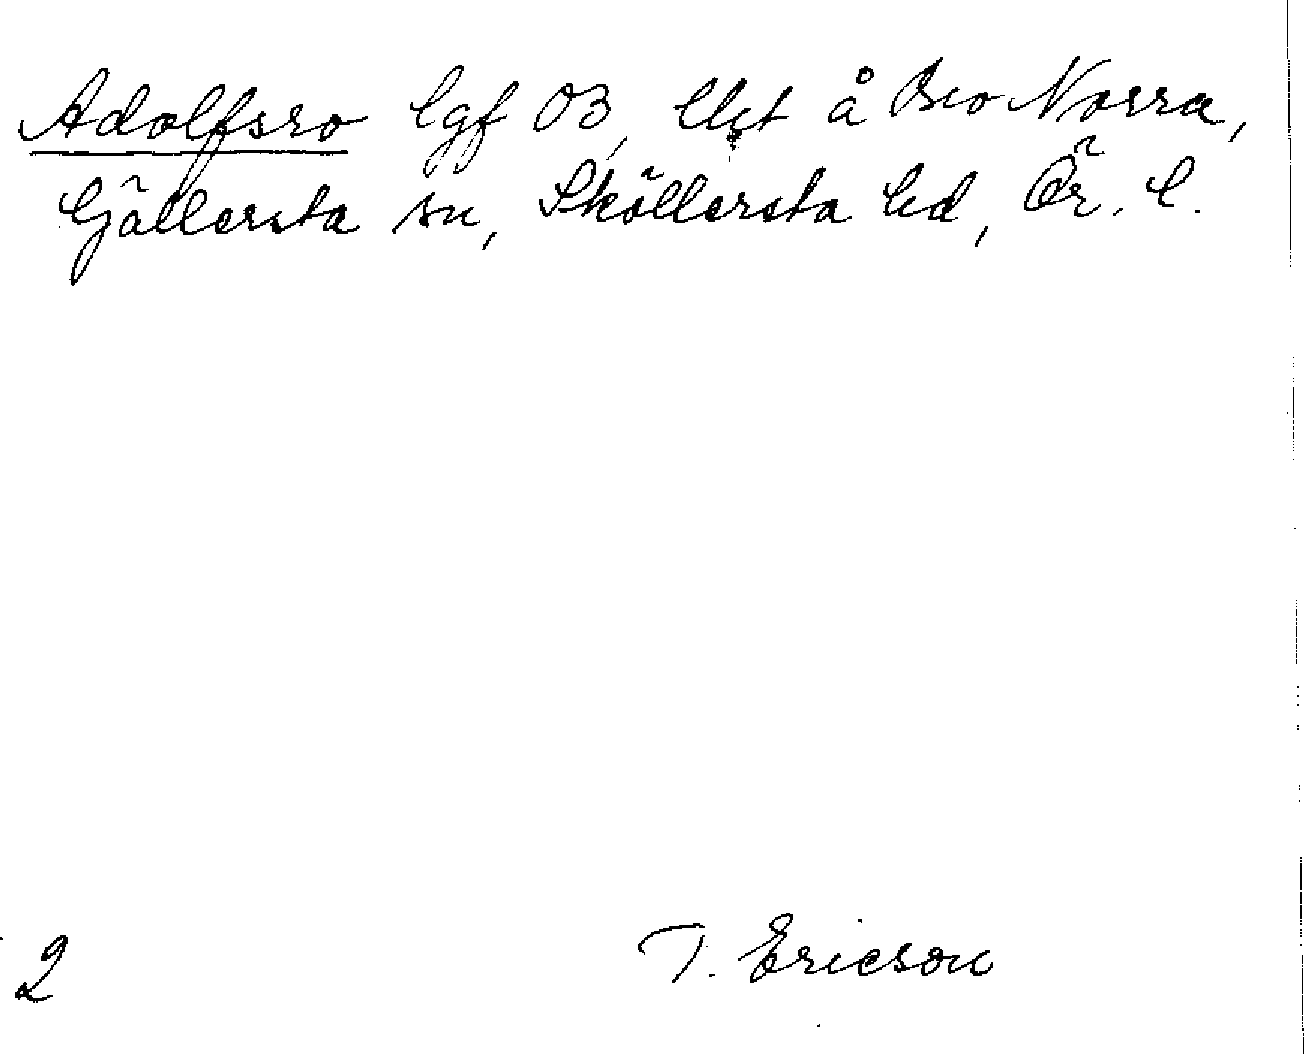 Adolfsro lgf 03, lht å Bro Norra,
Gällersta sn, Sköllersta hd, Ör. l.
2
T. Ericson